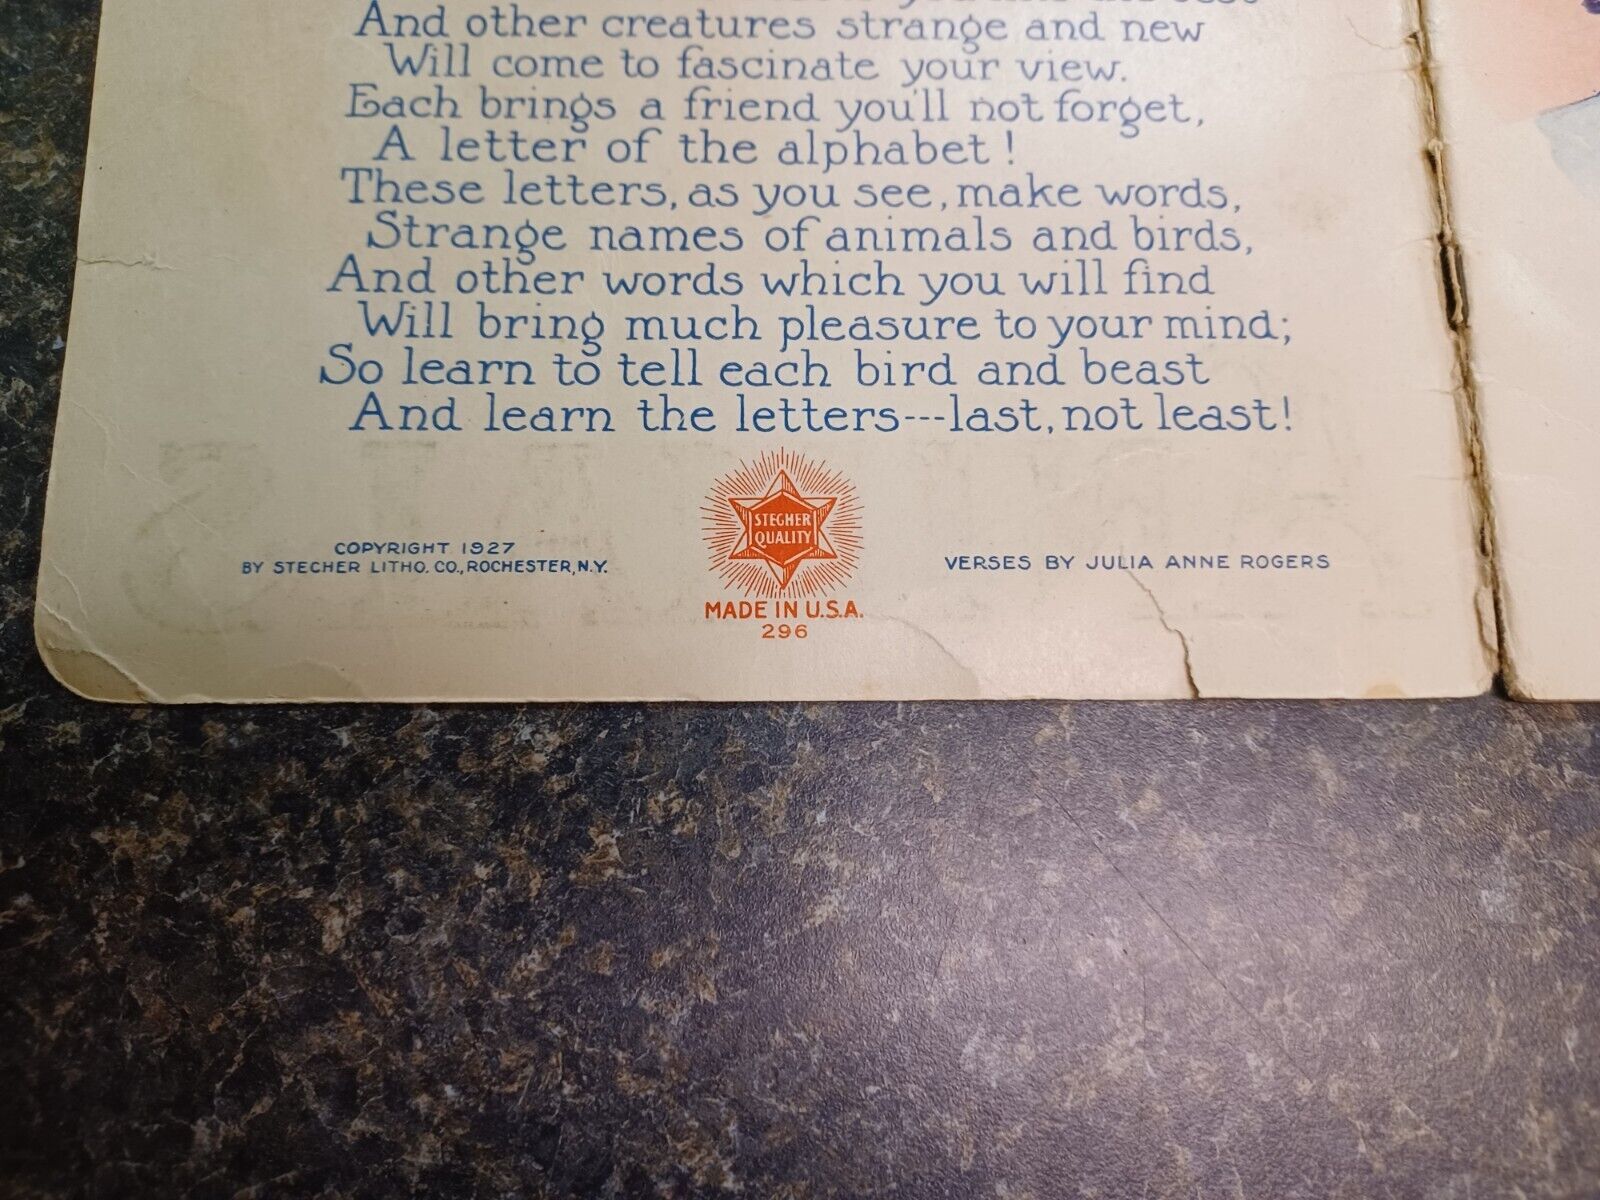 And other creatures strange and new
Will come to fascinate your view.
Each brings a friend you'll not forget,
A letter of the alphabet!
These letters, as you see, make words,
Strange names of animals and birds,
And other words which you will find
Will bring much pleasure to your mind;
So learn to tell each bird and beast
And learn the letters---last, not least!
STECHER
QUALITY
COPYRIGHT 1927
BY STECHER LITHO. CO., ROCHESTER, N.Y.
VERSES BY JULIA ANNE ROGERS
MADE IN U.S.A.
296